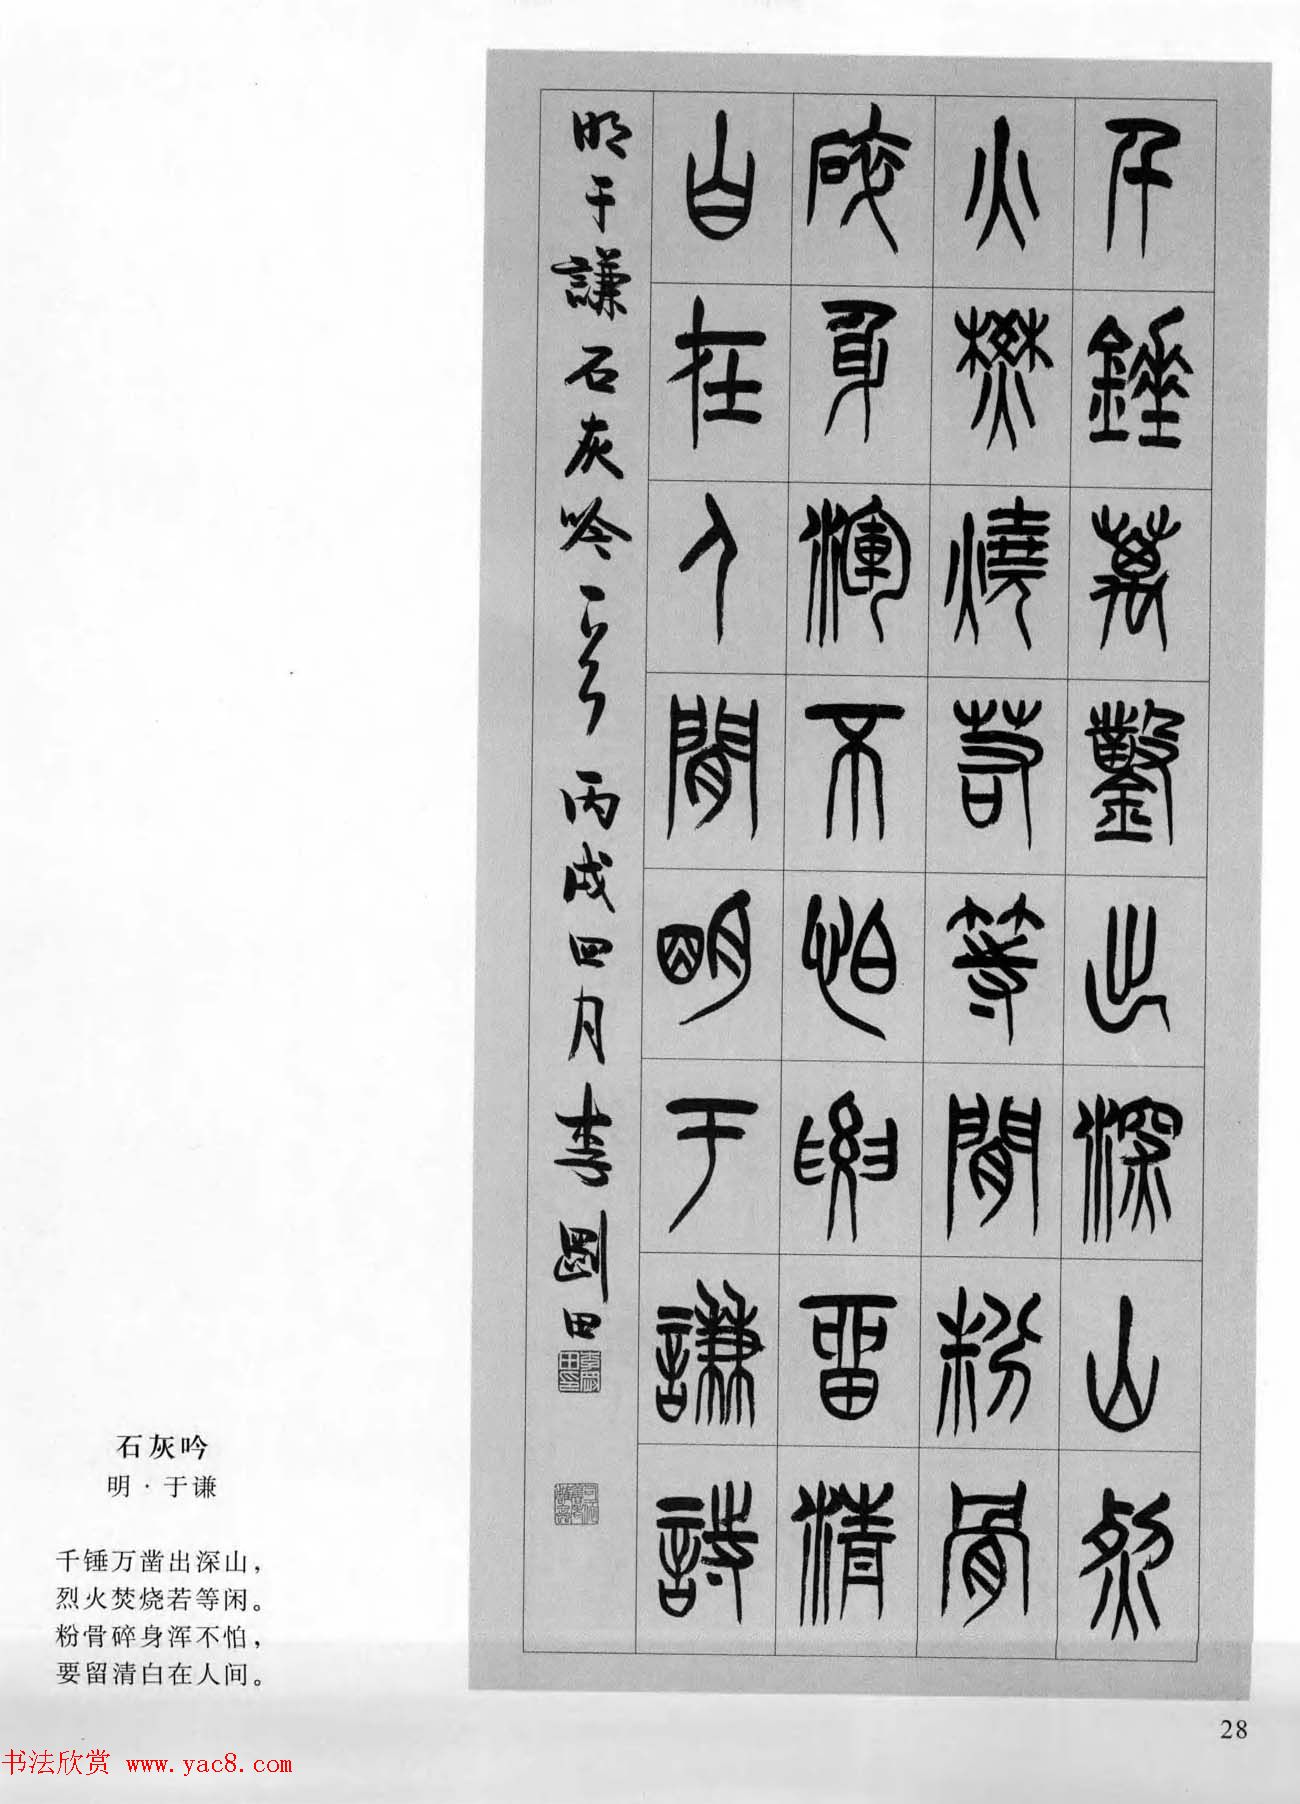 千錘萬鑿出深山烈
火焚燒若等閒粉骨
碎身渾不怕要留清
白在人間明于謙詩
明于謙石灰吟一首 丙戌四月李剛田
石灰吟
明·于谦
千锤万凿出深山，
烈火焚烧若等闲。
粉骨碎身浑不怕，
要留清白在人间。
28
书法欣赏 www.yac8.com